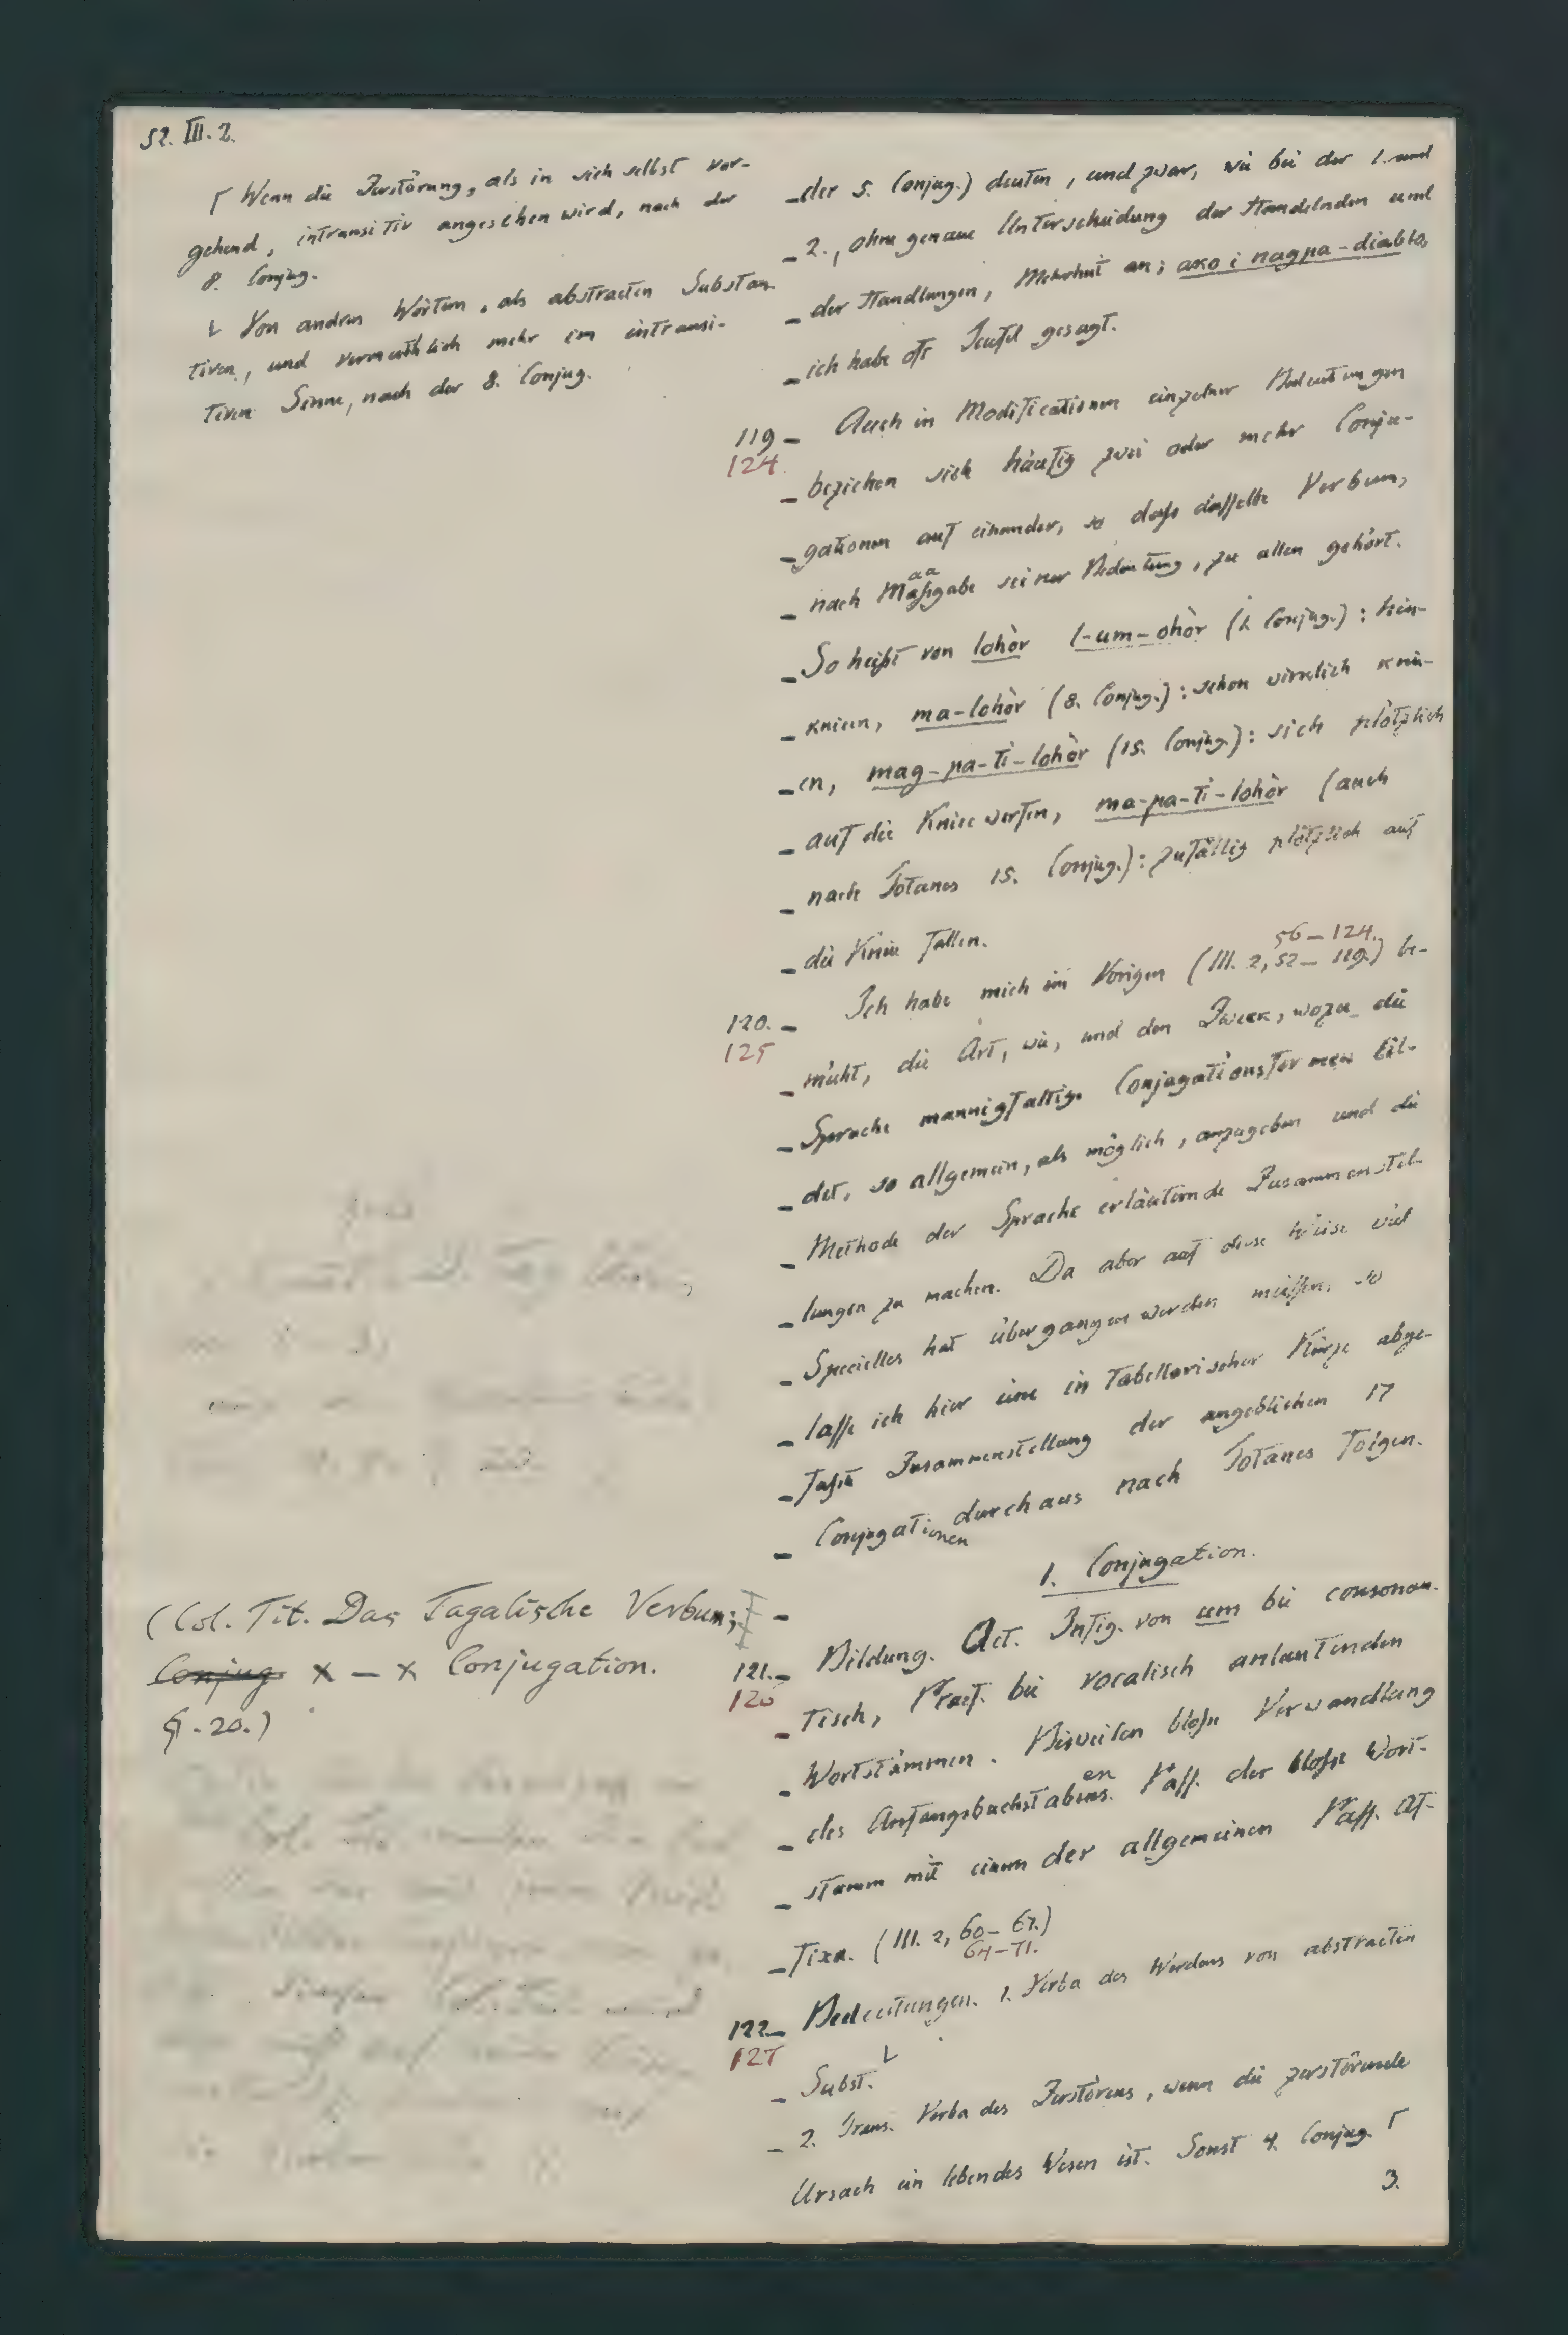 52. III. 2.
Γ Wenn die Zerstörung, als in sich selbst vor-
gehend, intransitiv angesehen wird, nach der
8. Conjug.
L Von andren Wörtern, als abstracten Substan-
tiven, und vermuthlich mehr im intransi-
tiven Sinne, nach der 8. Conjug.
(Col. Tit. Das Tagalische Verbum;
Conjug. x – x Conjugation.
§. 20.)
der 5. Conjug.) deuten, und zwar, wie bei der 1. und
2., ohne genaue Unterscheidung der Handelnden und
der Handlungen, Mehrheit an; aco i nagpa-diablo,
ich habe oft Teufel gesagt.
119 124. Auch in Modificationen einzelner Bedeutungen
beziehen sich häufig zwei oder mehr Conju-
gationen auf einander, so daß dasselbe Verbum,
aa
nach Maßgabe seiner Bedeutung, zu allen gehört.
So heißt von lohòr l-um-ohòr (1. Conjug.): hin-
knieen, ma-lohòr (8. Conjug.): schon wirklich knie-
en, mag-pa-ti-lohòr (15. Conjug.): sich plötzlich
auf die Kniee werfen, ma-pa-ti-lohòr (auch
nach Totanes 15. Conjug.): zufällig plötzlich auf
die Kniee fallen.
56–124.
120. 125 Ich habe mich im Vorigen (III. 2, 52–119.) be-
müht, die Art, wie, und den Zweck, wozu die
Sprache mannigfaltige Conjugationsformen bil-
det, so allgemein, als möglich, anzugeben und die
Methode der Sprache erläuternde Zusammenstel-
lungen zu machen. Da aber auf diese Weise viel
Specielles hat übergangen werden müssen, so
lasse ich hier eine in tabellarischer Kürze abge-
faßte Zusammenstellung der angeblichen 17
Conjugationen durchaus nach Totanes folgen.
1. Conjugation.
121. 126 Bildung. Act. Infig. von um bei consonan-
tisch, Praef. bei vocalisch anlautenden
Wortstämmen. Bisweilen bloße Verwandlung
en
des Anfangsbuchstabens. Pass. der bloße Wort-
stamm mit einem der allgemeinen Pass. Af-
fixa. (III. 2, 60–67.)
64–71.
122. 127 Bedeutungen. 1. Verba des Werdens von abstracten
Subst. L
2. Trans. Verba des Zerstörens, wenn die zerstörende
Ursach ein lebendes Wesen ist. Sonst 4. Conjug. Γ
3.